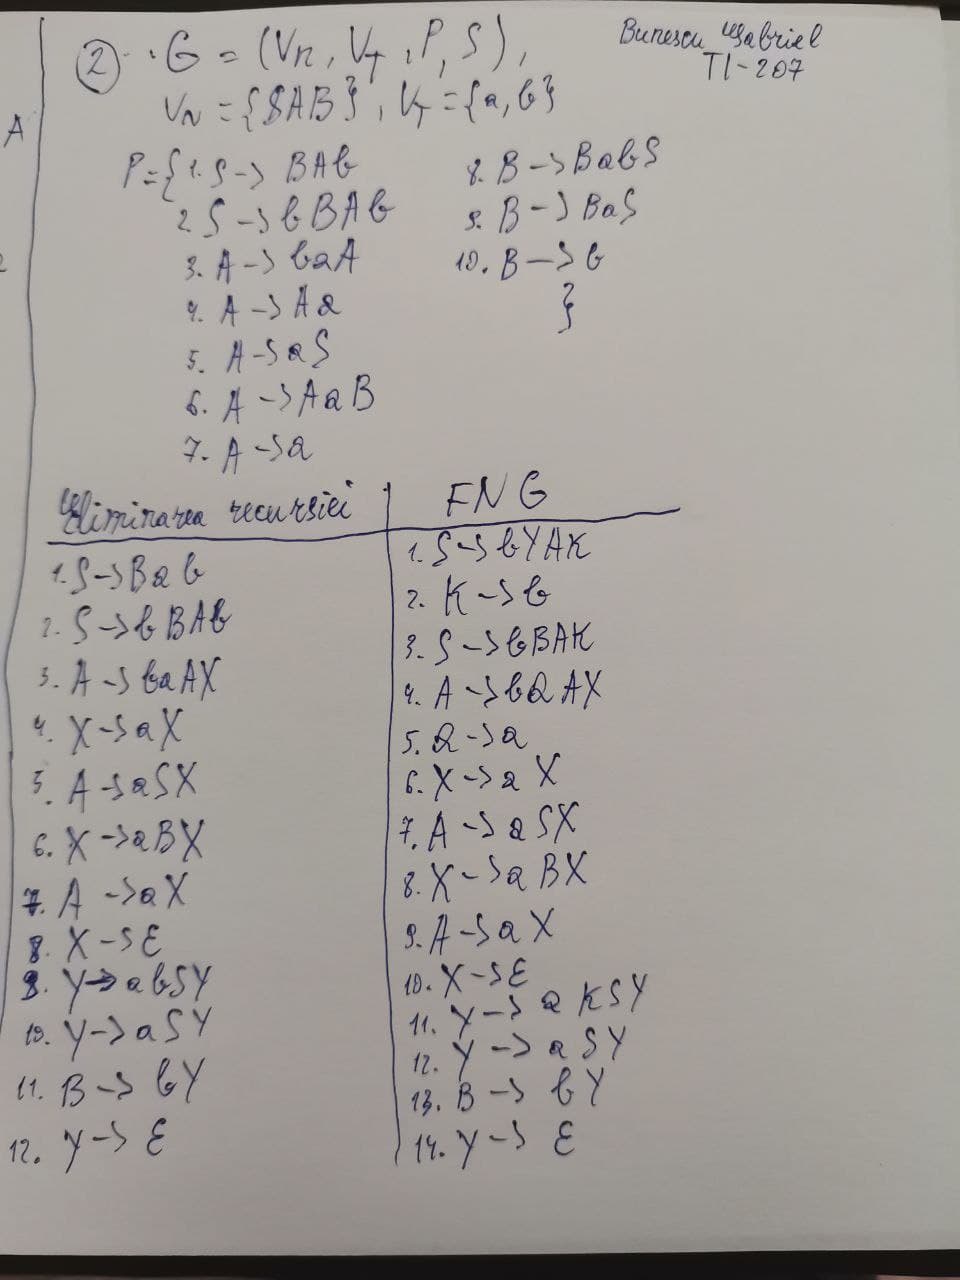 Bunescu Gabriel
TI-207
2 . G = (Vn, VT, P, S),
VN = {SAB}, VT = {a, b}
A
P={1. S -> BAb
2. S -> bBAb
3. A -> baA
4. A -> Aa
5. A -> aS
6. A -> AaB
7. A -> a
8. B -> BabS
9. B -> BaS
10. B -> b
}
Eliminarea recursiei
1. S -> Bab
2. S -> bBAb
3. A -> baAX
4. X -> aX
5. A -> aSX
6. X -> aBX
7. A -> aX
8. X -> ε
9. Y -> abSY
10. Y -> aSY
11. B -> bY
12. Y -> ε
FNG
1. S -> bYAK
2. K -> b
3. S -> bBAK
4. A -> bQAX
5. Q -> a
6. X -> aX
7. A -> aSX
8. X -> aBX
9. A -> aX
10. X -> ε
11. Y -> aKSY
12. Y -> aSY
13. B -> bY
14. Y -> ε